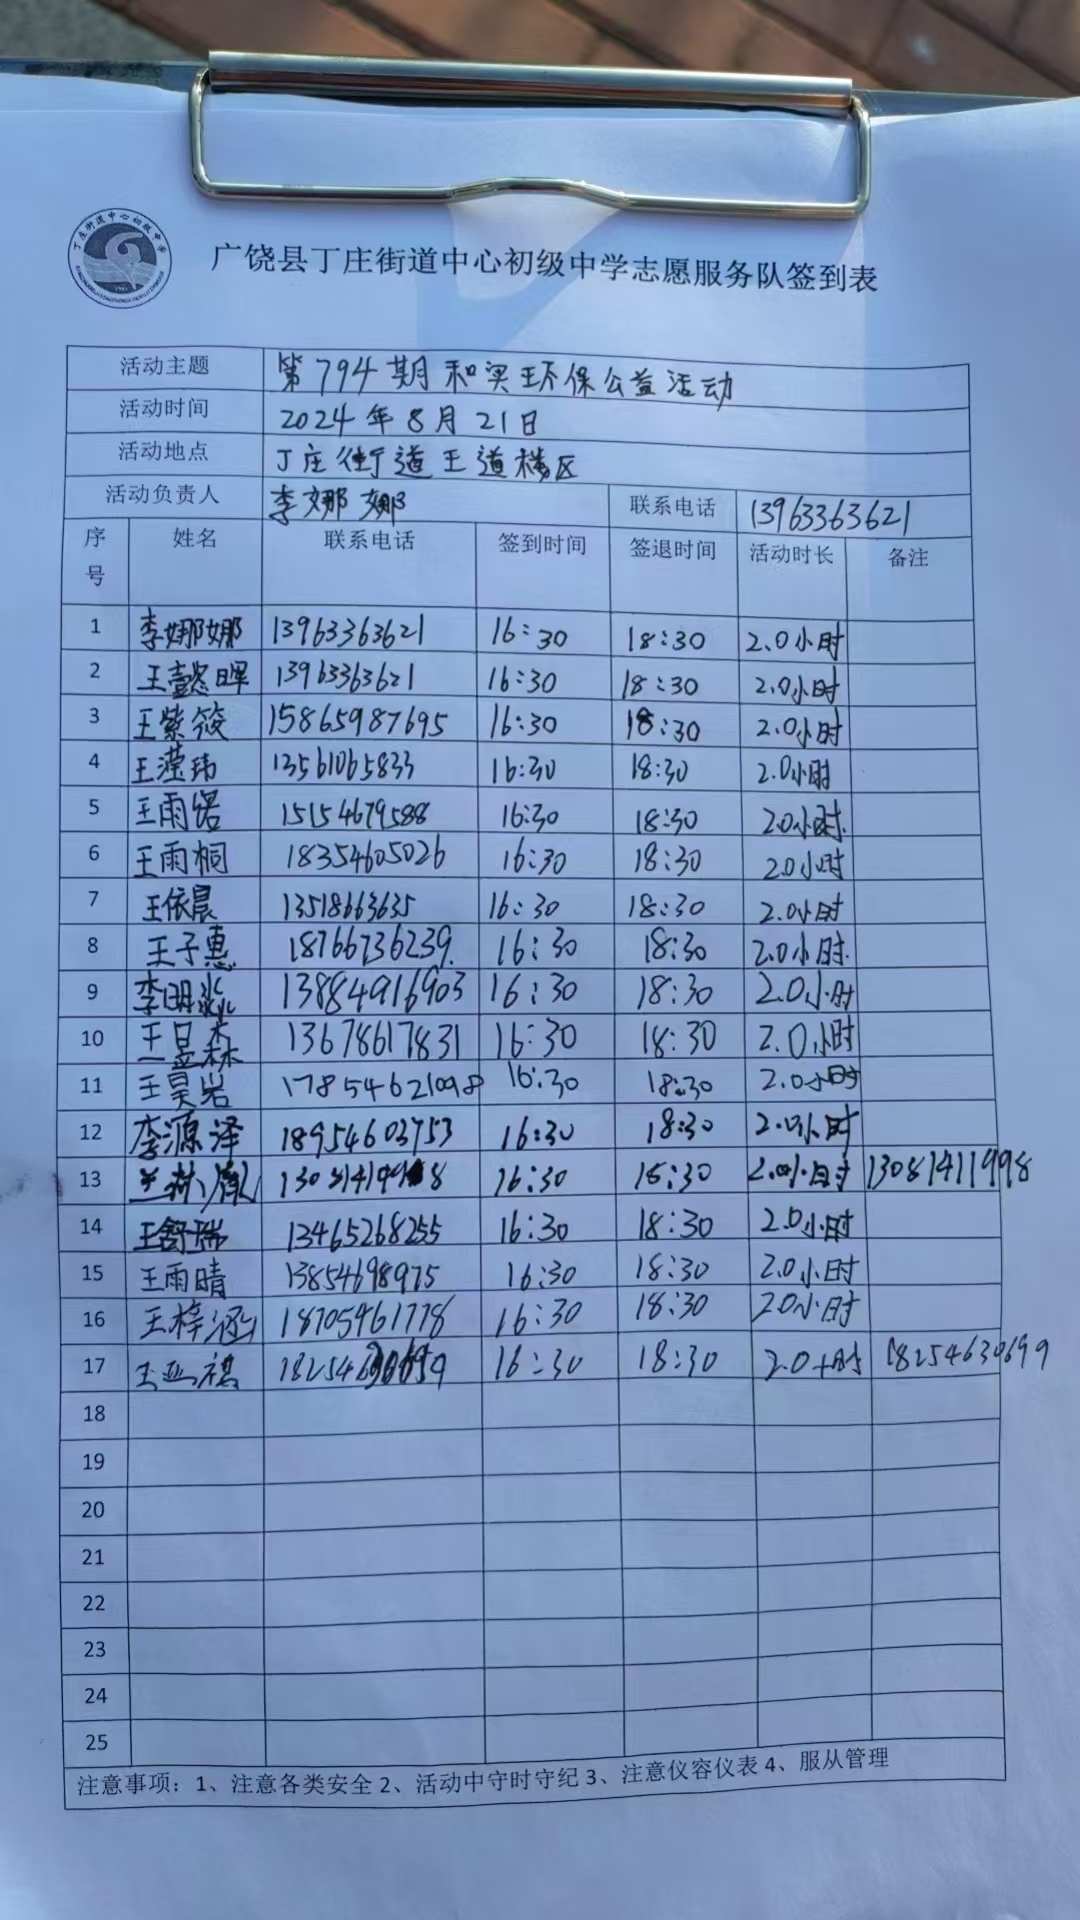 丁庄街道中心初级中学
广饶县丁庄街道中心初级中学志愿服务队签到表
活动主题 第794期和美环保公益活动
活动时间 2024年8月21日
活动地点 丁庄街道王道楼区
活动负责人 李娜娜 联系电话 13963363621
序号 姓名 联系电话 签到时间 签退时间 活动时长 备注
1 李娜娜 13963363621 16:30 18:30 2.0小时
2 王懿晖 13963363621 16:30 18:30 2.0小时
3 王紫筱 15865987695 16:30 18:30 2.0小时
4 王滢玮 13561065833 16:30 18:30 2.0小时
5 王雨 15154679588 16:30 18:30 2.0小时
6 王雨桐 18354605026 16:30 18:30 2.0小时
7 王依晨 13518663635 16:30 18:30 2.0小时
8 王子惠 18766736239 16:30 18:30 2.0小时
9 李明淼 13884916903 16:30 18:30 2.0小时
10 王昱森 13678617831 16:30 18:30 2.0小时
11 王昊岩 17854621098 16:30 18:30 2.0小时
12 李源泽 18954603753 16:30 18:30 2.0小时
13 16:30 18:30 2.0小时 13081411998
14 王舒瑞 13465268255 16:30 18:30 2.0小时
15 王雨晴 13854698975 16:30 18:30 2.0小时
16 王梓涵 18705461778 16:30 18:30 2.0小时
17 王亚祺 16:30 18:30 2.0小时 18254630699
18
19
20
21
22
23
24
25
注意事项：1、注意各类安全 2、活动中守时守纪 3、注意仪容仪表 4、服从管理